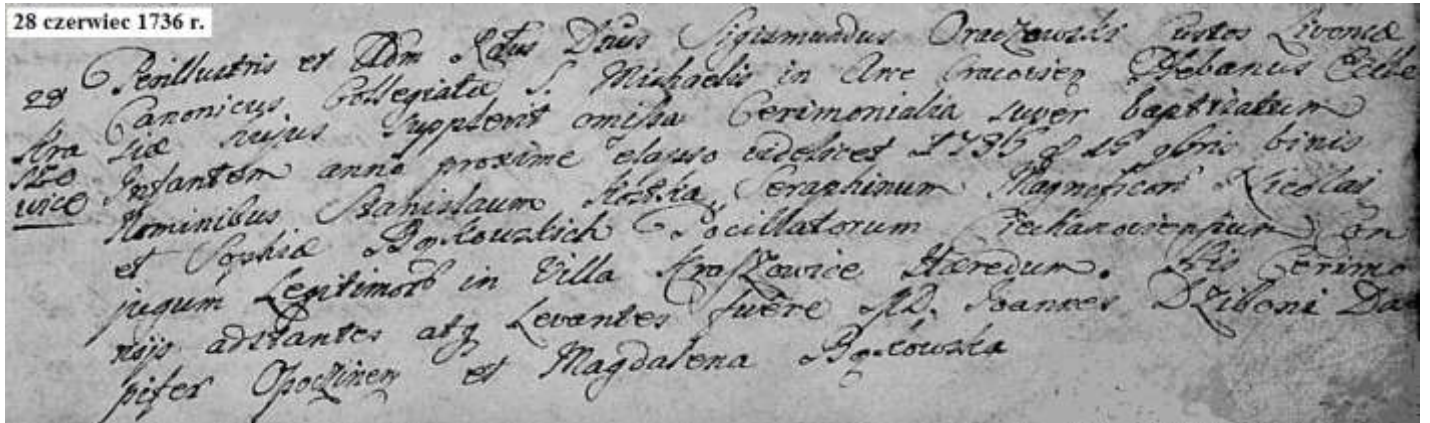 28 czerwiec 1736 r.
28 Perillustris et Adm Rdus Dnus Sigismundus Oraczowski Custos Livoniæ
Canonicus Collegiatæ S. Michaelis in Arce Cracovien Plebanus Eccle
Kra siæ hujus supplevit omissa Cerimonialia super baptizatum
szo Infantem anno proxime elapso videlicet 1735 15 bris binis
wice Nominibus Stanislaum Kostka, Seraphinum Magnificorum Nicolai
et Sophiæ Pocillatorum Con
jugum Legitimorum in Villa Kraszowice Hæredum. His Cerimo
nijs adstantes atq Levantes fuere MD. Joannes Dziboni Da
pifer Opoczinen et Magdalena